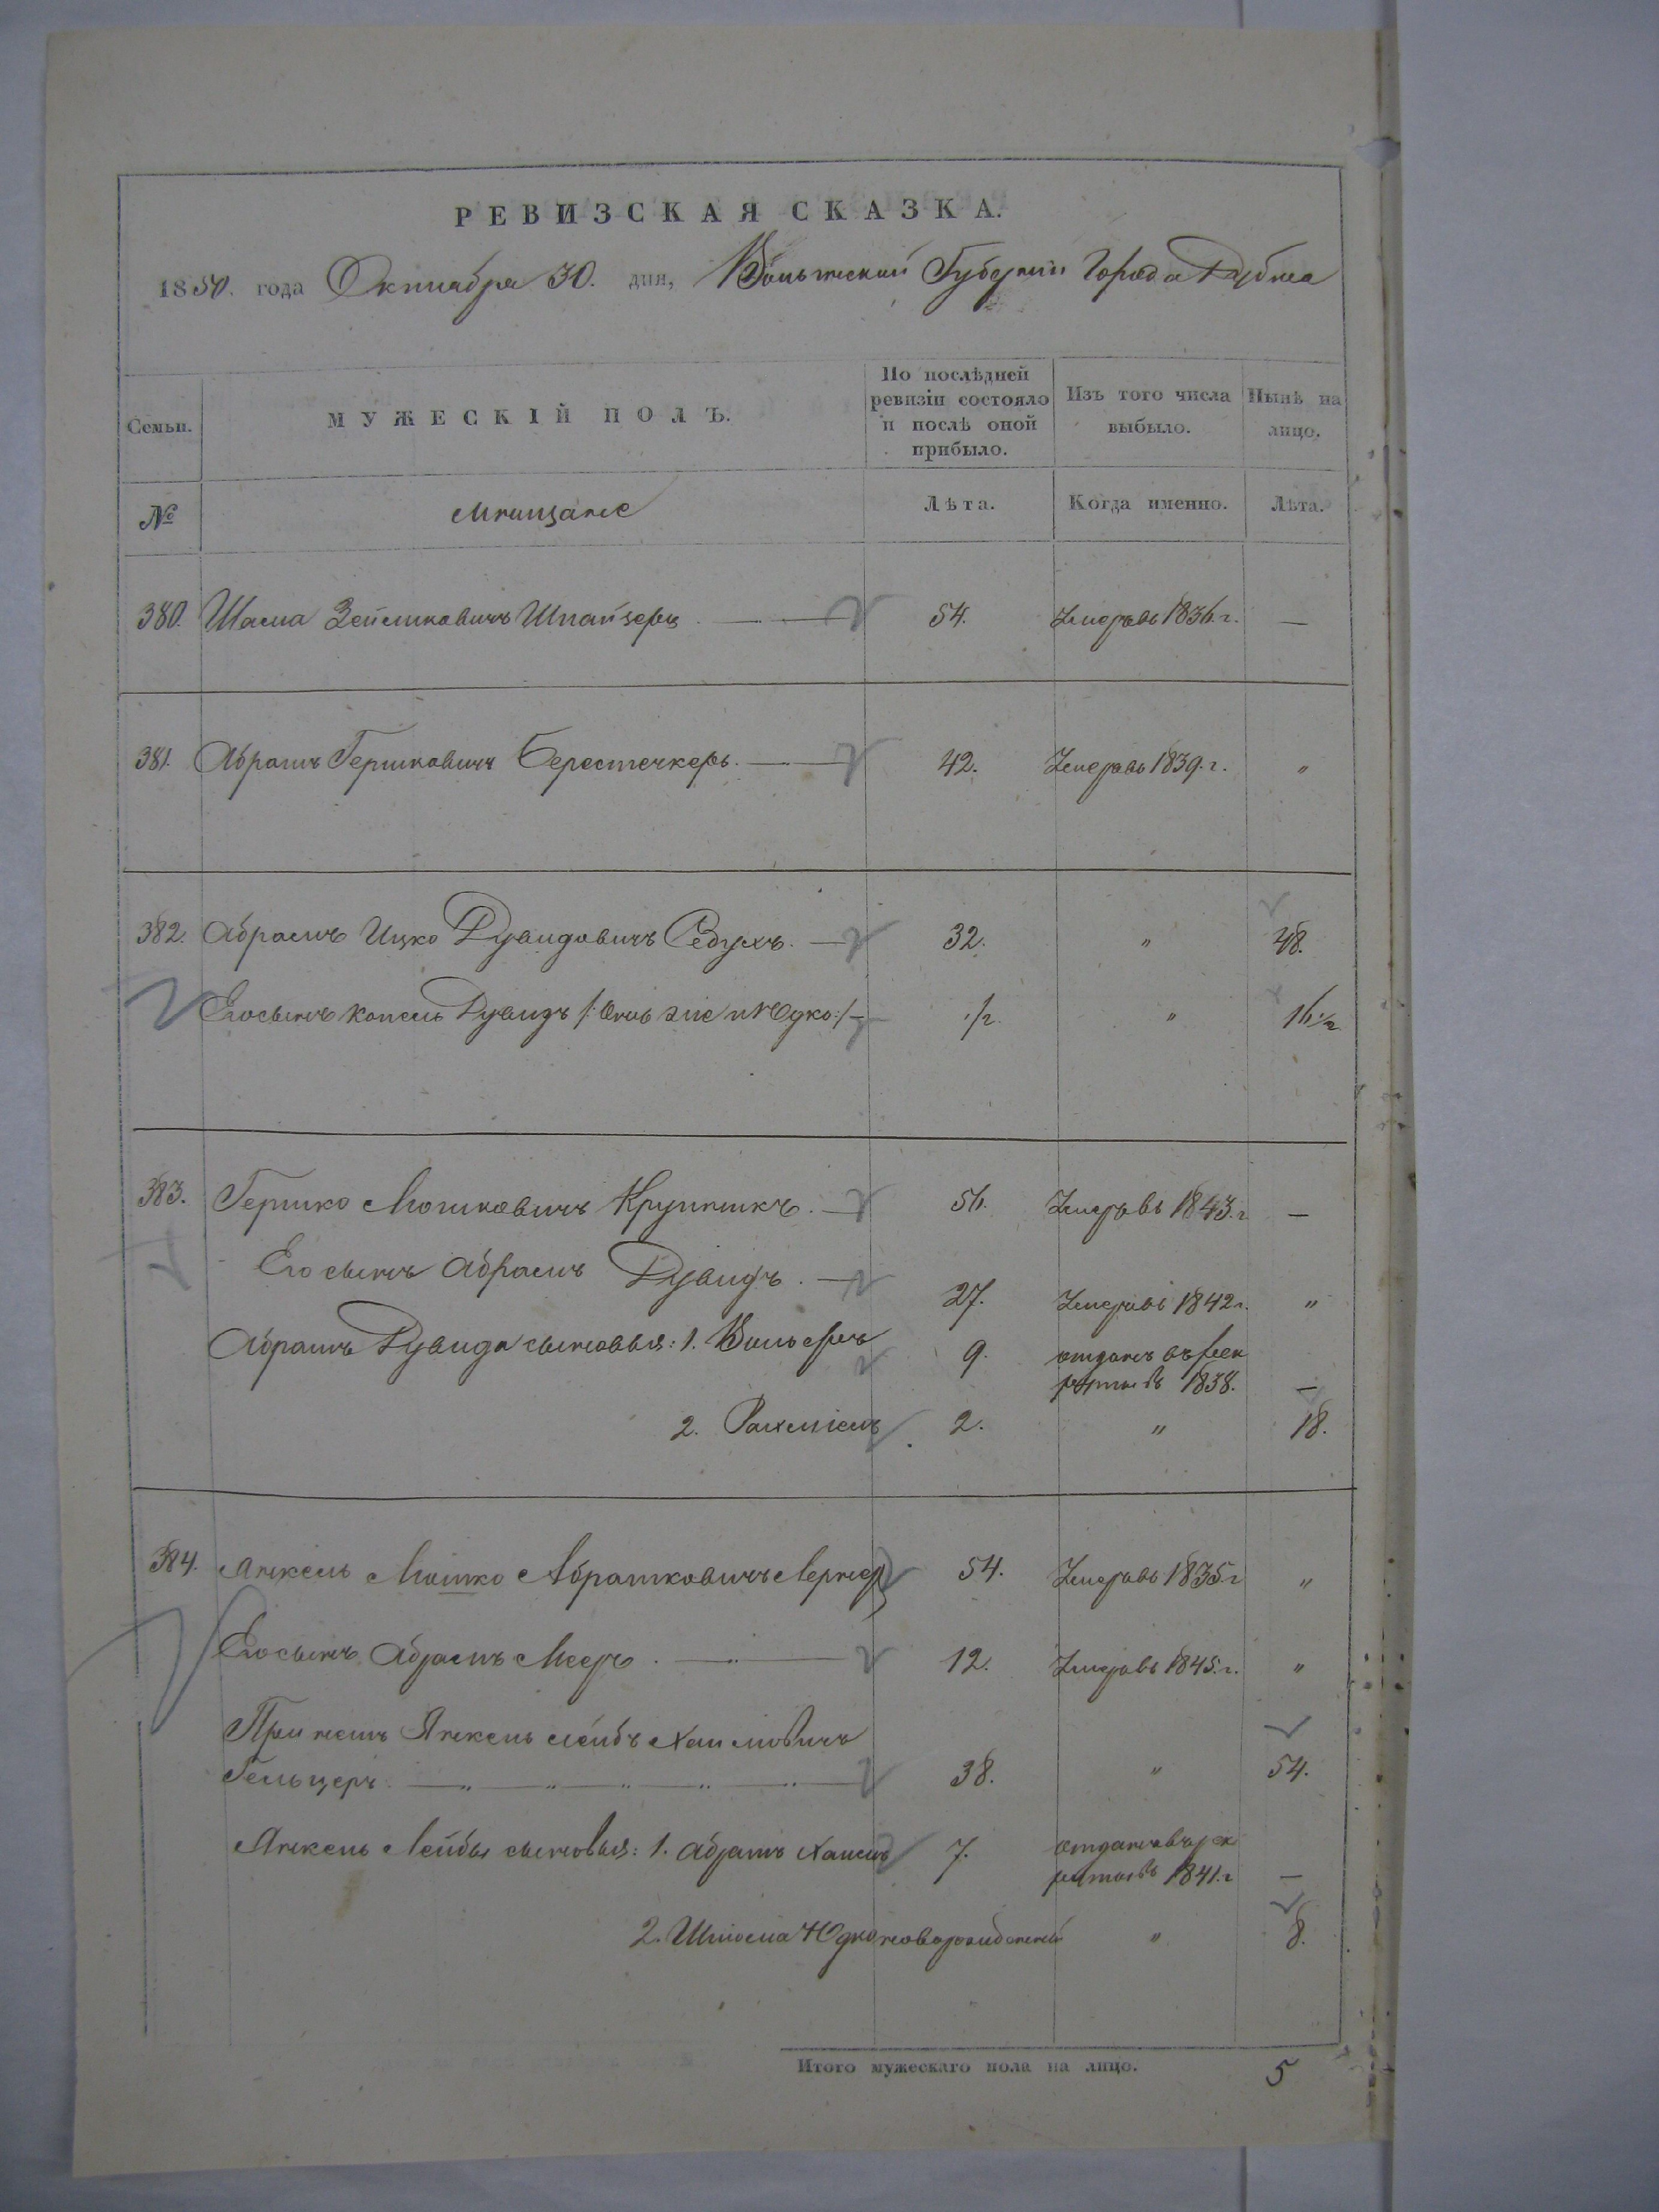 РЕВИЗСКАЯ СКАЗКА.
1850. года Октября 30. дня, Волынской Губернии Города Дубна
Семьи.
МУЖЕСКІЙ ПОЛЪ.
По послѣдней ревизіи состояло и послѣ оной прибыло.
Изъ того числа выбыло.
Нынѣ на лицо.
№
мещане
Лѣта.
Когда именно.
Лѣта.
380. Шама Зельмковичъ Шпайзеръ 54. Умеръ въ 1836.г. —
381. Абрамъ Гершковичъ Берестечкеръ. 42. Умеръ въ 1839.г. "
382. Абрамъ Ицко Дувидовичъ Редухъ. 32. " 48.
Его сынъ Копель Дувидъ /: Онъ же и Юдко :/ 1/2. " 16 1/2
383. Гершко Мошковичъ Крупникъ. 56. Умеръ въ 1843.г —
Его сынъ Абрамъ Дувидъ. 27. Умеръ въ 1842г. "
Абрамъ Дувида сыновья: 1. Вольфъ 9. отданъ въ рек
руты въ 1838. —
2. Рахміель 2. " 18.
384. Янкель Мошко Абрамковичъ Лернер 54. Умеръ въ 1835.г "
Его сынъ Абрамъ Мееръ. 12. Умеръ въ 1845.г. "
При немъ Янкель Лейбъ Хаимовичъ
Гельцеръ 38. " 54.
Янкель Лейбы сыновья: 1. Абрамъ Хаимъ 7. отданъ въ рек
руты въ 1841.г —
2. Шлёма Юдко новорожденный " 8.
Итого мужескаго пола на лицо. 5